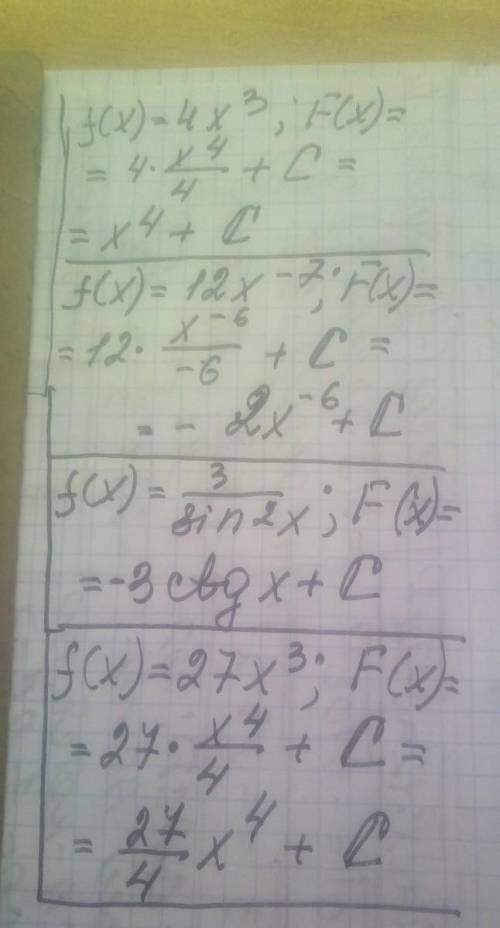 f(x) = 4x³; F(x) =
= 4 · x⁴/4 + C =
= x⁴ + C
f(x) = 12x⁻⁷; F(x) =
= 12 · x⁻⁶/-6 + C =
= - 2x⁻⁶ + C
f(x) = 3/sin²x; F(x) =
= -3 ctg x + C
f(x) = 27x³; F(x) =
= 27 · x⁴/4 + C =
= 27/4 x⁴ + C